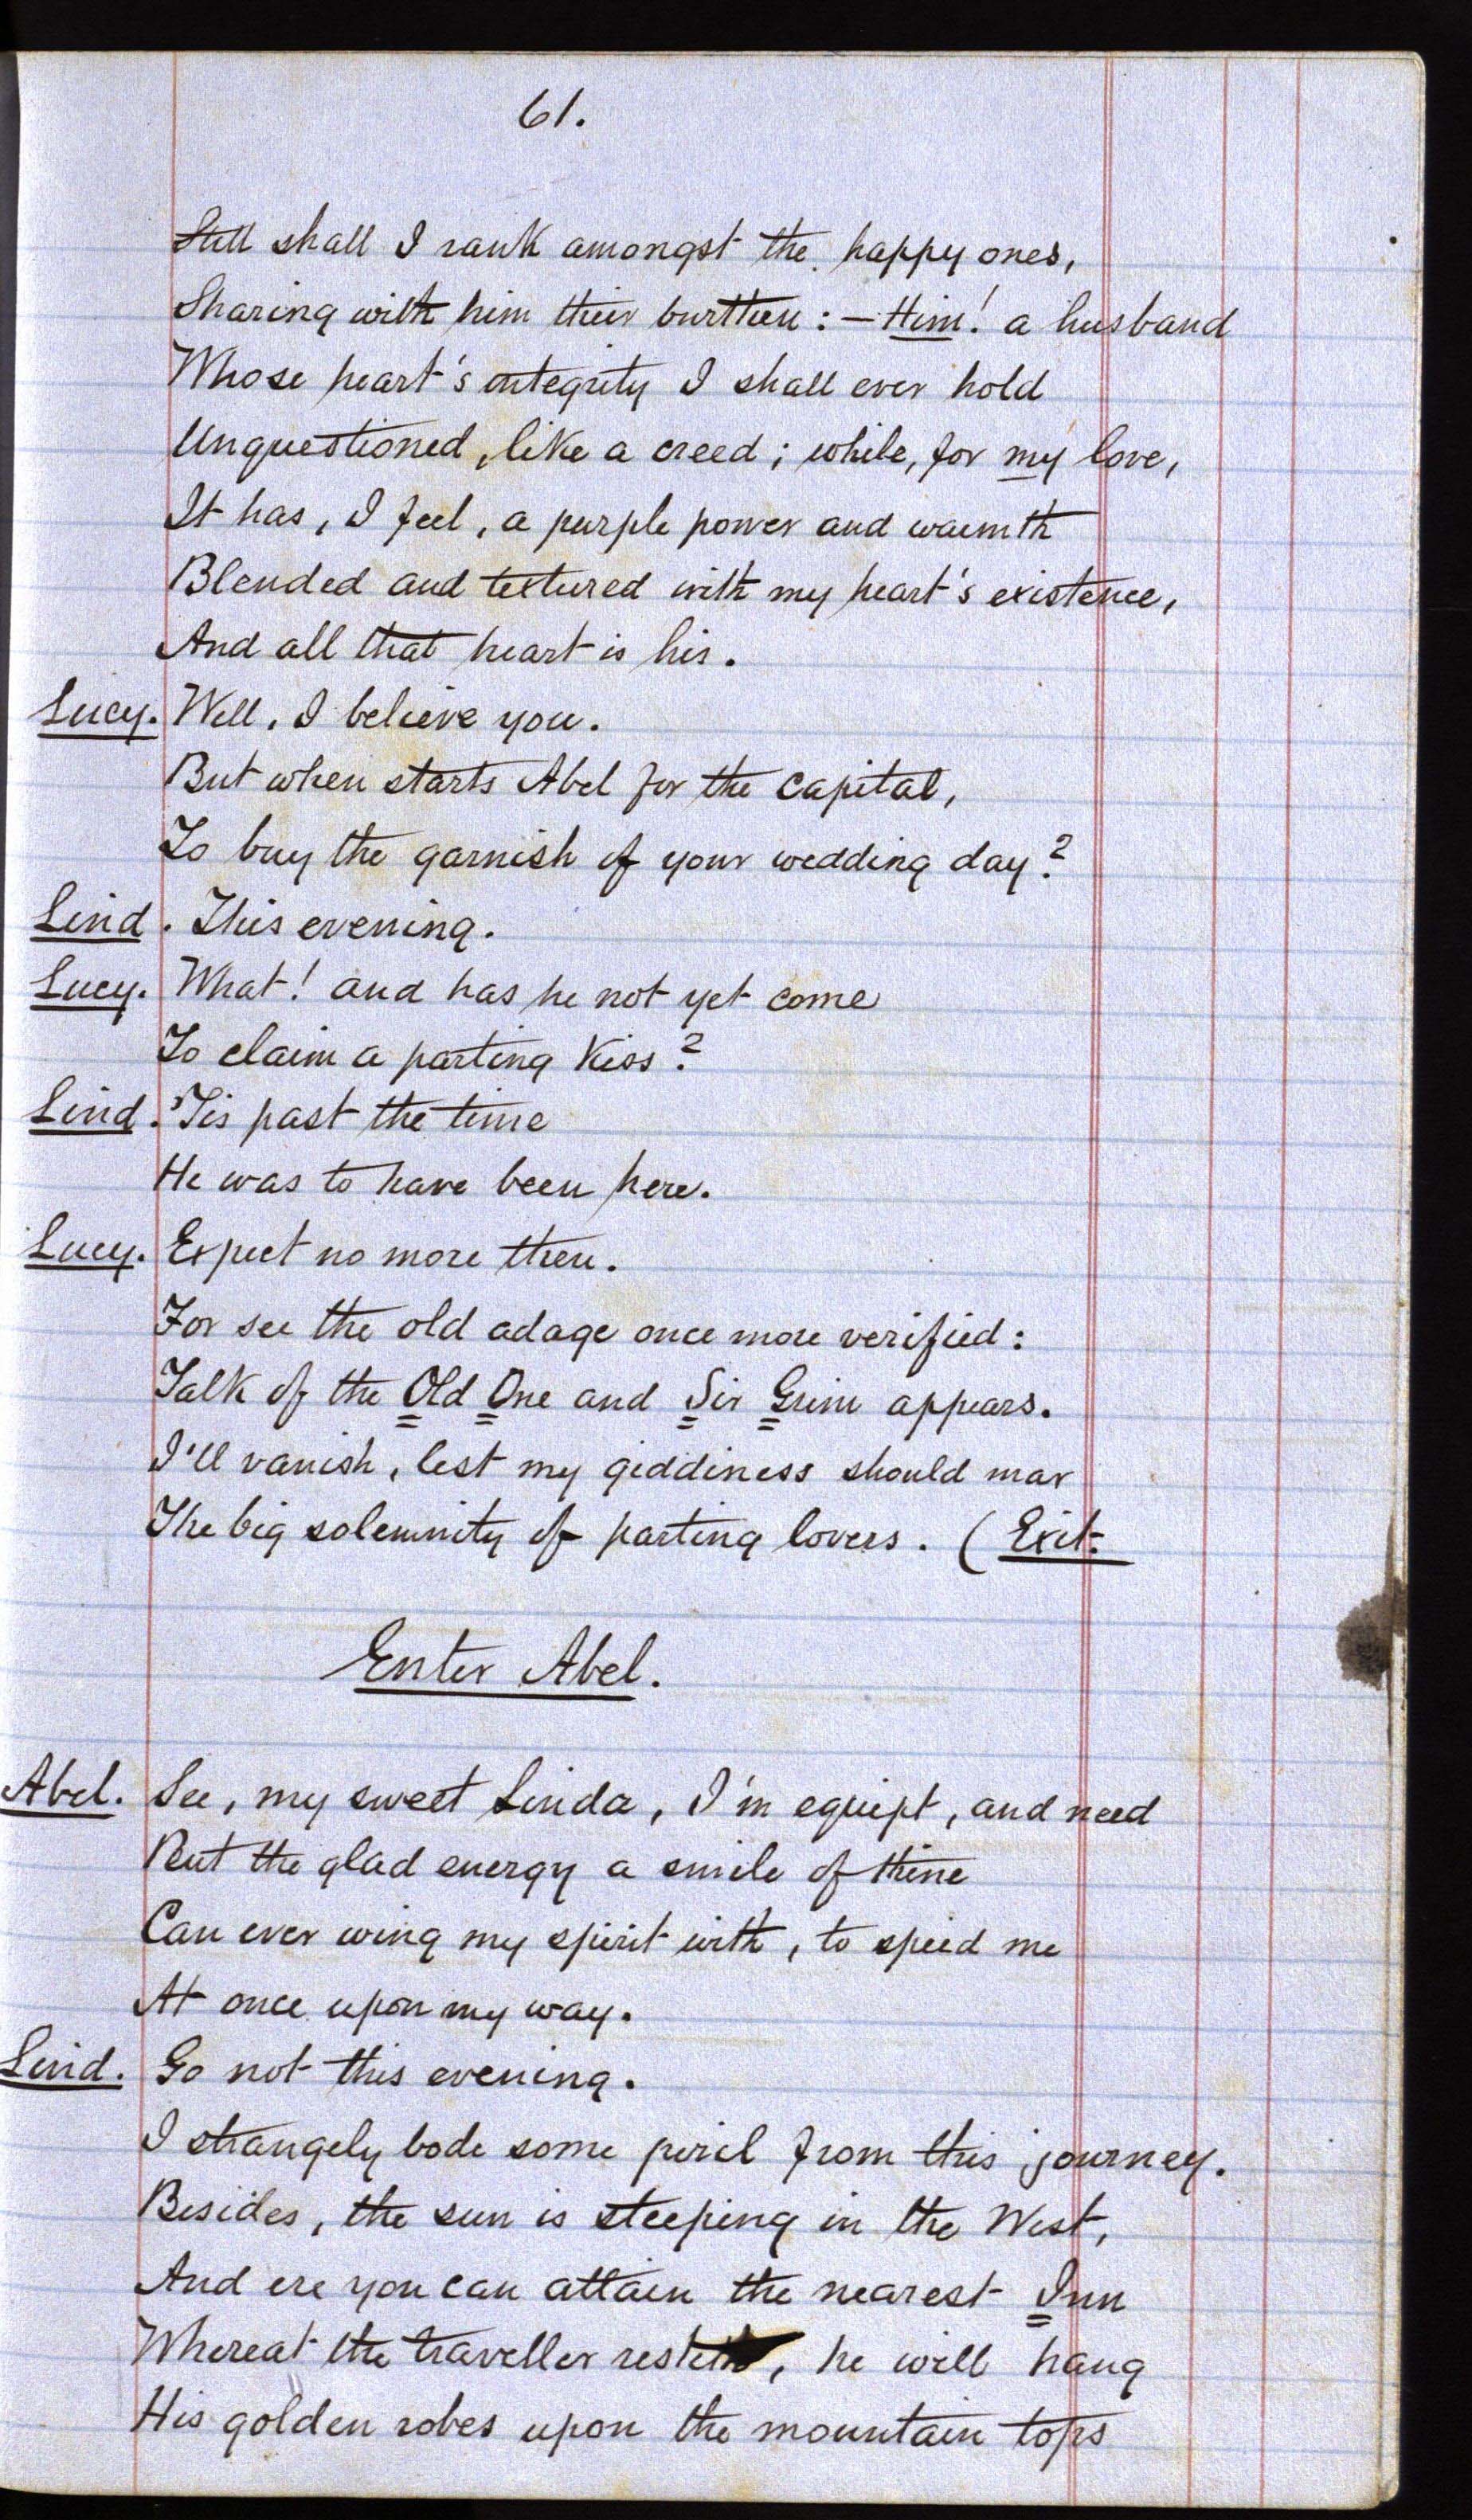 61.
Still shall I rank amongst the happy ones,
Sharing with him their burthen: — Him! a husband
Whose heart's integrity I shall ever hold
Unquestioned, like a creed; while, for my love,
It has, I feel, a purple power and warmth
Blended and textured with my heart's existence,
And all that heart is his.
Lucy. Well, I believe you.
But when starts Abel for the capital,
To buy the garnish of your wedding day?
Lind. This evening.
Lucy. What! and has he not yet come
To claim a parting kiss?
Lind. 'Tis past the time
He was to have been here.
Lucy. Expect no more then.
For see the old adage once more verified:
Talk of the Old One and Sir Grim appears.
I'll vanish, lest my giddiness should mar
The big solemnity of parting lovers. (Exit.
Enter Abel.
Abel. See, my sweet Linda, I'm equipt, and need
But the glad energy a smile of thine
Can ever wing my spirit with, to speed me
At once upon my way.
Lind. Go not this evening.
I strangely bode some peril from this journey.
Besides, the sun is steeping in the West,
And ere you can attain the nearest Inn
Whereat the traveller resteth, he will hang
His golden robes upon the mountain tops